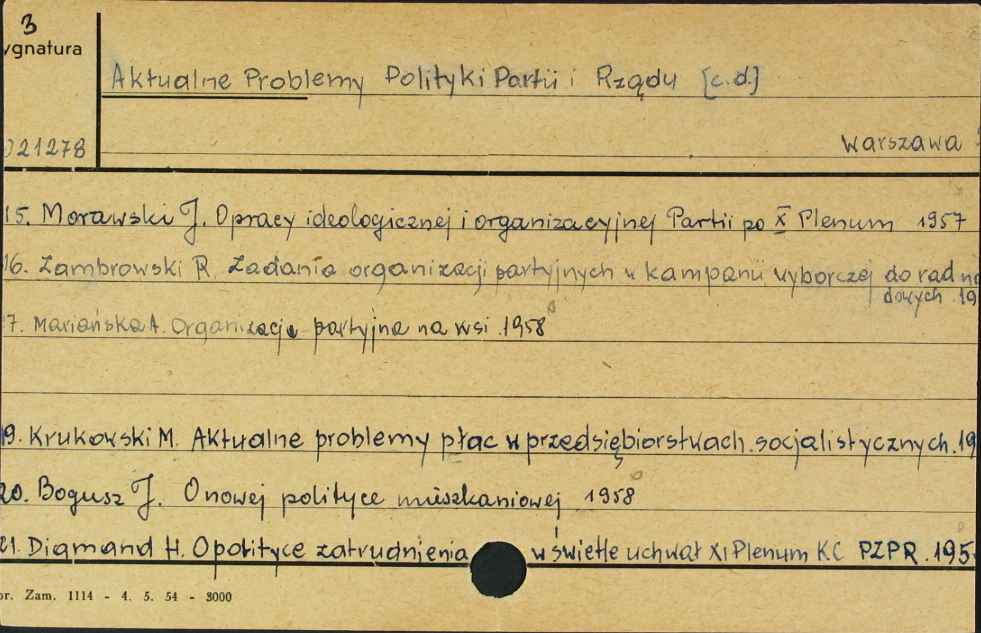 3
ygnatura
Aktualne Problemy Polityki Partii i Rządu [c.d.]
021278
Warszawa
15. Morawski J. O pracy ideologicznej i organizacyjnej Partii po X Plenum 1957
16. Zambrowski R. Zadania organizacji partyjnych w kampanii wyborczej do rad na
dowych 19
7. Mariańska A. Organizacja partyjna na wsi. 1958
19. Krukowski M. Aktualne problemy płac w przedsiębiorstwach socjalistycznych. 19
20. Bogusz J. O nowej polityce mieszkaniowej 1958
21. Diamand H. O polityce zatrudnienia w świetle uchwał XI Plenum KC PZPR. 195
or. Zam. 1114 - 4. 5. 54 - 3000